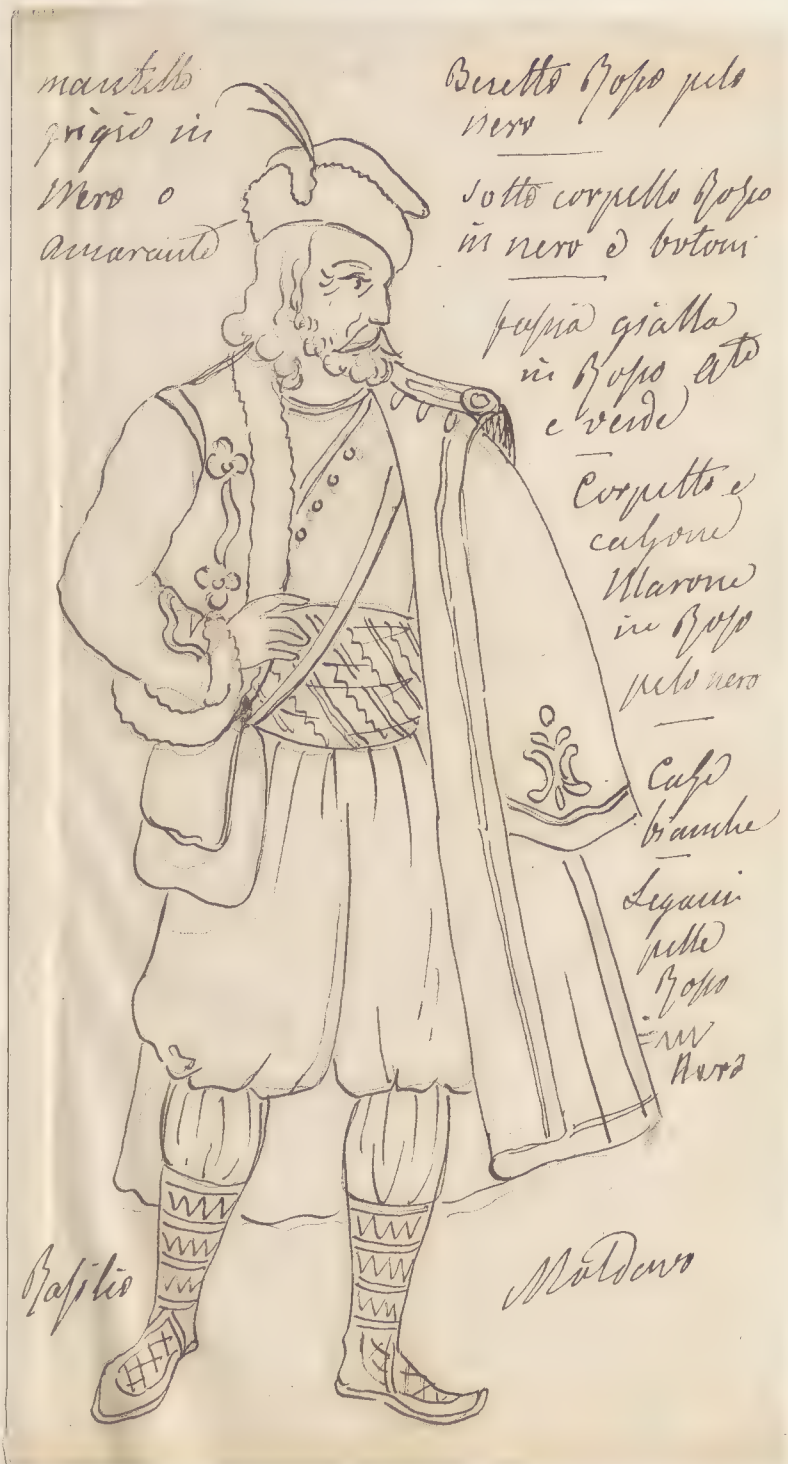 mantello
grigio in
Nero o
amarante
Beretto Rosso pelo
nero
sotto corpetto Rosso
in nero e botoni
fassia gialla
in Rosso
e verde
Corpetto e
calzone
Marone
in Rosso
pelo nero
Calze
bianche
Legacci
pelle
Rosso
in
Nero
Basilio
Moldavo